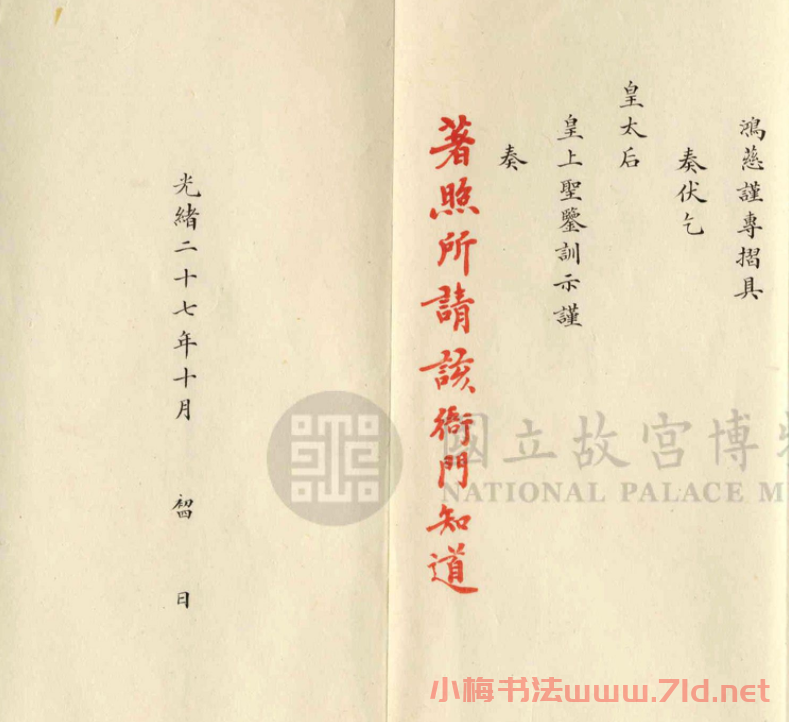 鴻慈謹專摺具
奏伏乞
皇太后
皇上聖鑒訓示謹
奏
著照所請該衙門知道
光緒二十七年十月 初四 日
國立故宮博物
NATIONAL PALACE M
小梅书法www.7ld.net